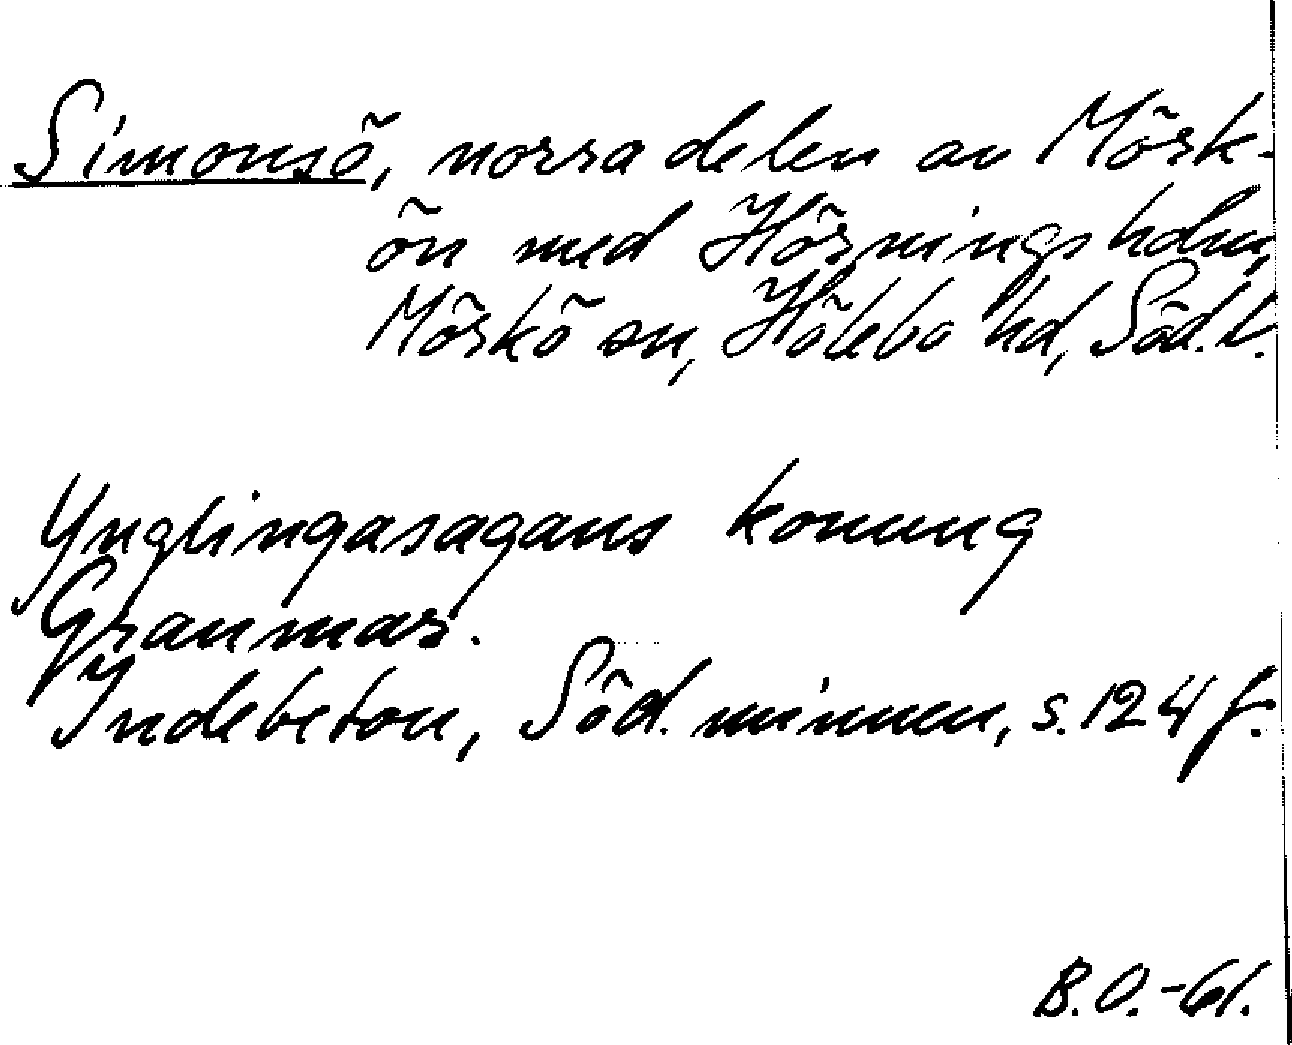 Simonsö, norra delen av Mörk-
ön med Hörningsholm,
Mörkö sn, Hölebo hd, Söd. l.
Ynglingasagans konung
Granmar.
Indebetou, Söd. minnen, s. 124 f.
B.O.-61.